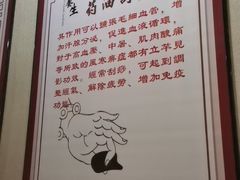 生药面
其作用可以擴張毛細血管，增
加汗腺分泌，促進血液循環，
對于高血壓、中暑、肌肉酸痛
等所致的風寒痺症都有立竿見
影功效。經常刮痧，可起到調
整經氣、解除疲勞、增加免疫
功能。